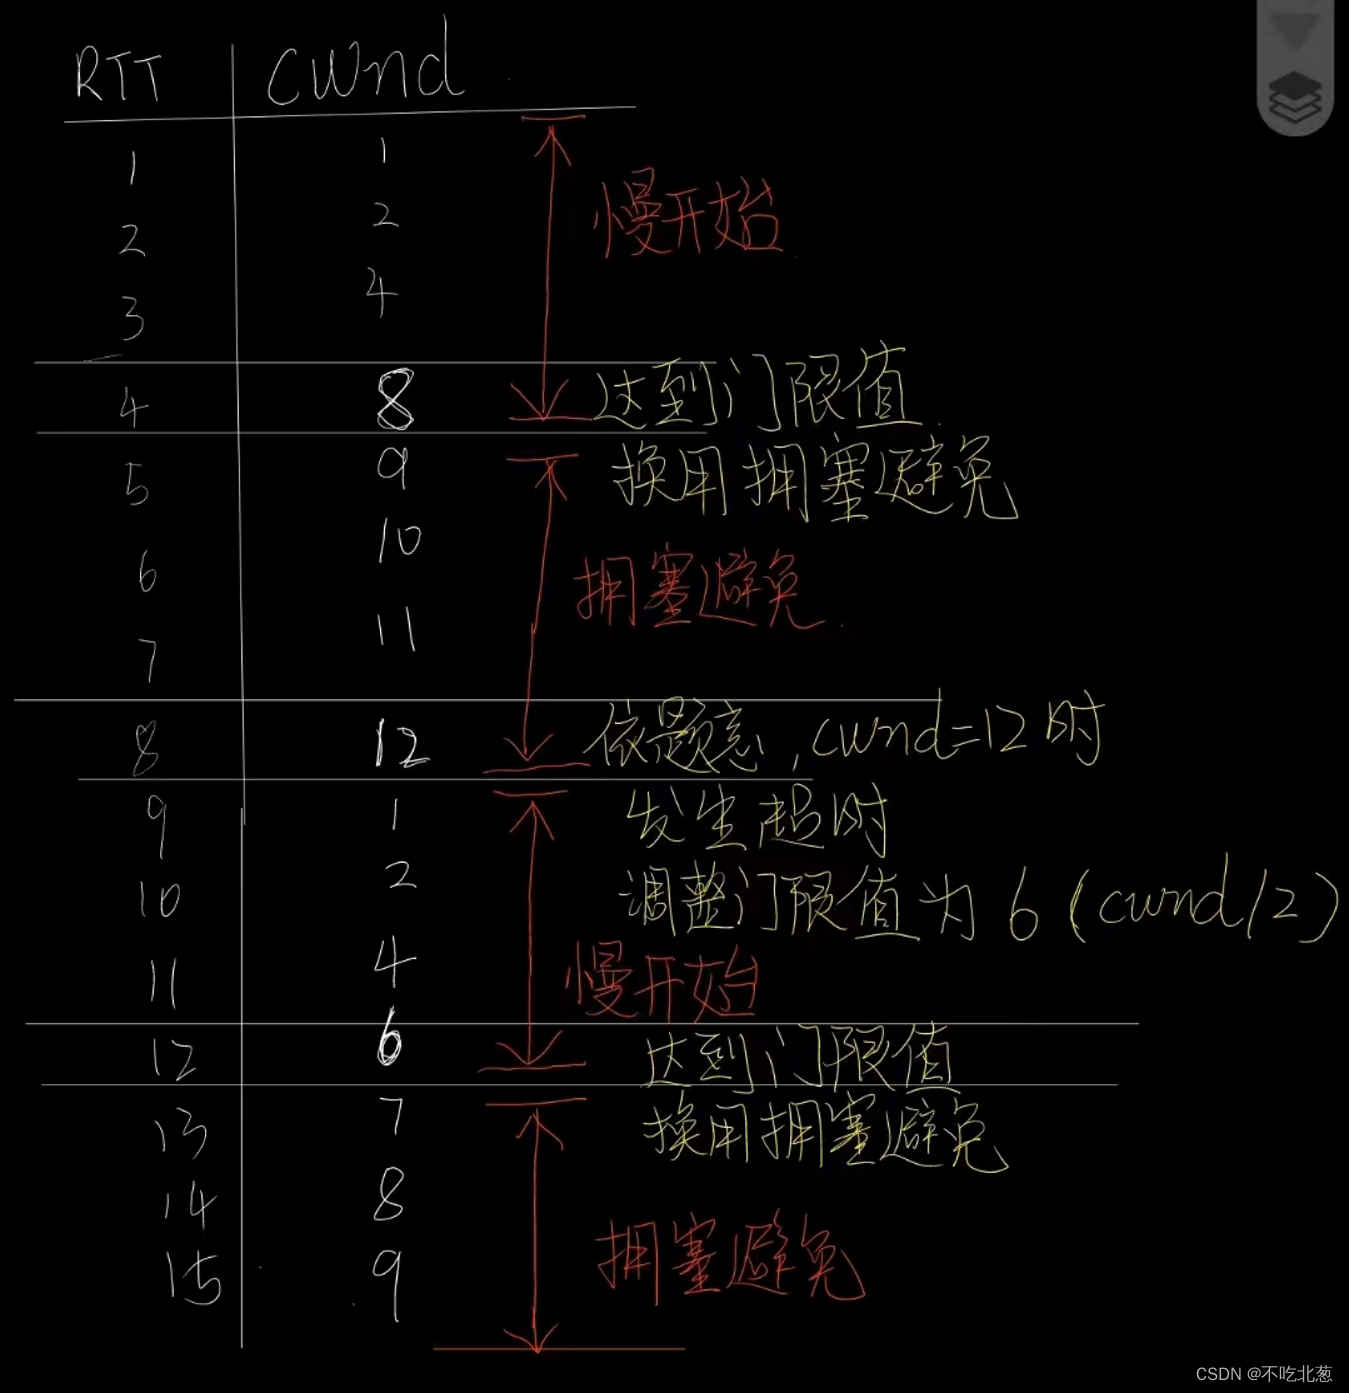 RTT cwnd
1 1
2 2
慢开始
3 4
4 8 达到门限值
5 9 换用拥塞避免
6 10
拥塞避免
7 11
8 12 依题意,cwnd=12时
9 1 发生超时
10 2 调整门限值为6(cwnd/2)
11 4 慢开始
12 6 达到门限值
13 7 换用拥塞避免
14 8
15 9 拥塞避免
CSDN @不吃北葱